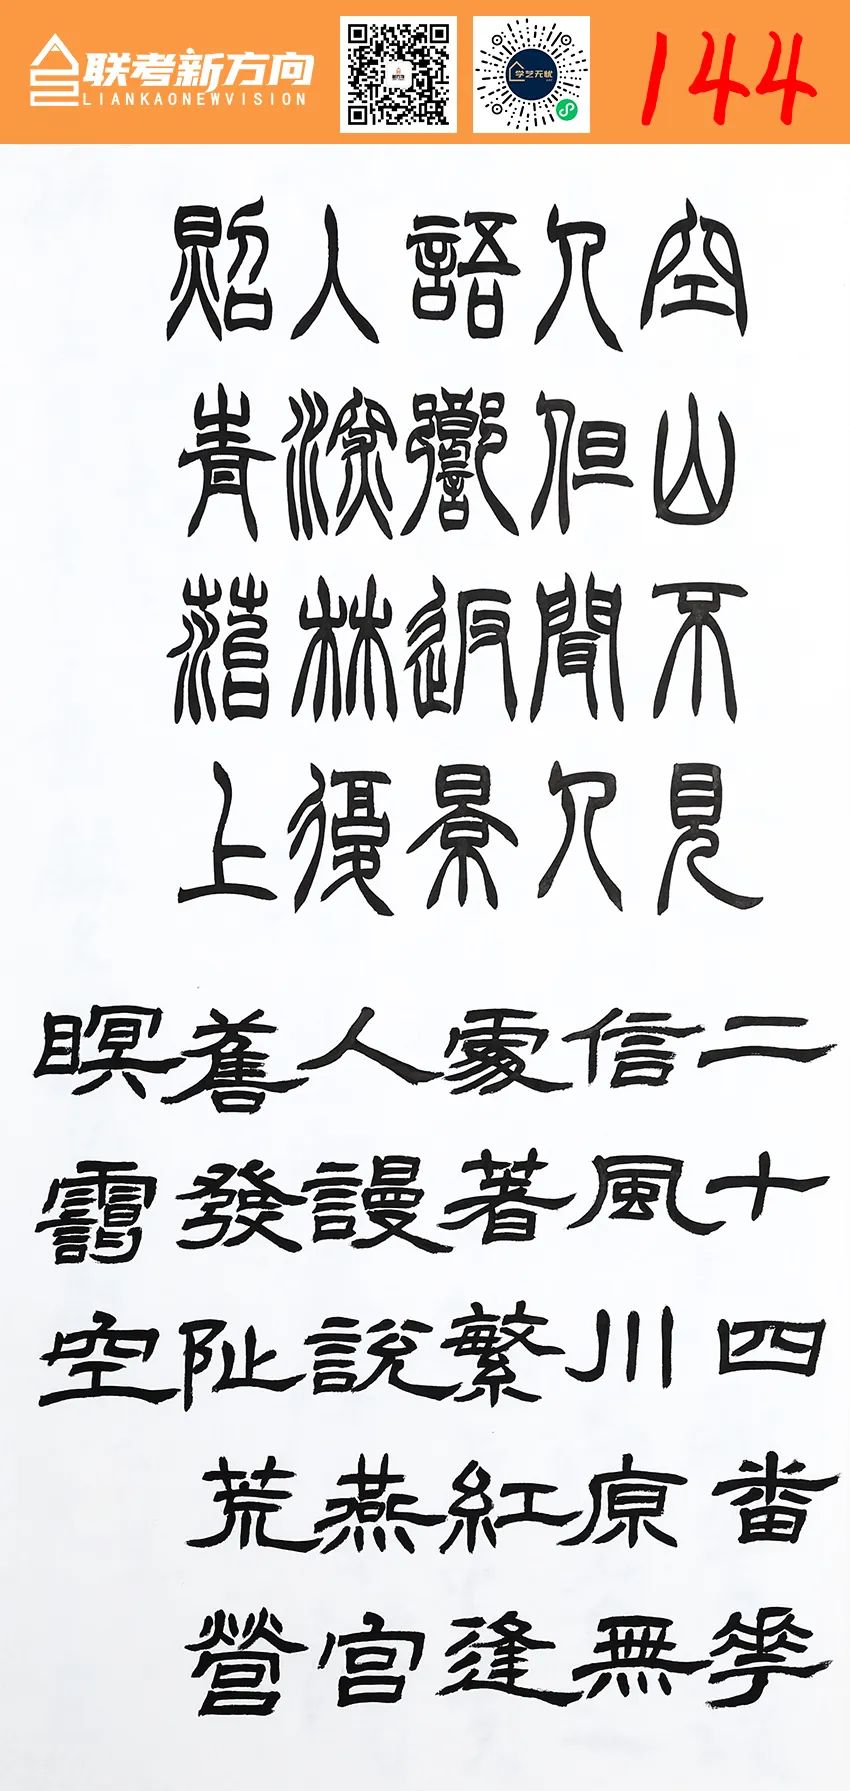 联考新方向
LIANKAONEWVISION
学艺无忧
144
空山不見
人但聞人
語響返景
入深林復
照青菭上
二十四番花
信風川原無
處著繁紅逢
人謾說燕宮
舊發阯荒營
暝靄空